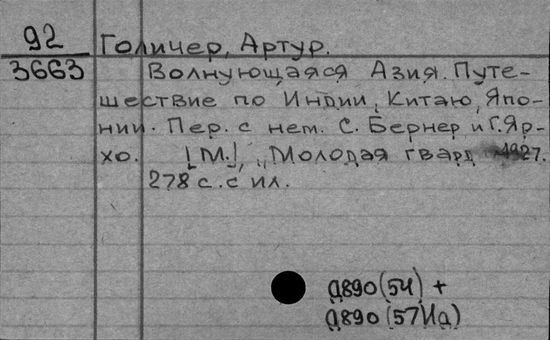 92
3663
Голичер, Артур.
Волнующаяся Азия. Путе-
шествие по Индии, Китаю, Япо-
нии. Пер. с нем. С. Бернер и Г. Яр-
хо. [М.], „Молодая гвард 1927.
278 с. с ил.
Д890(54) +
Д890(57Ид)